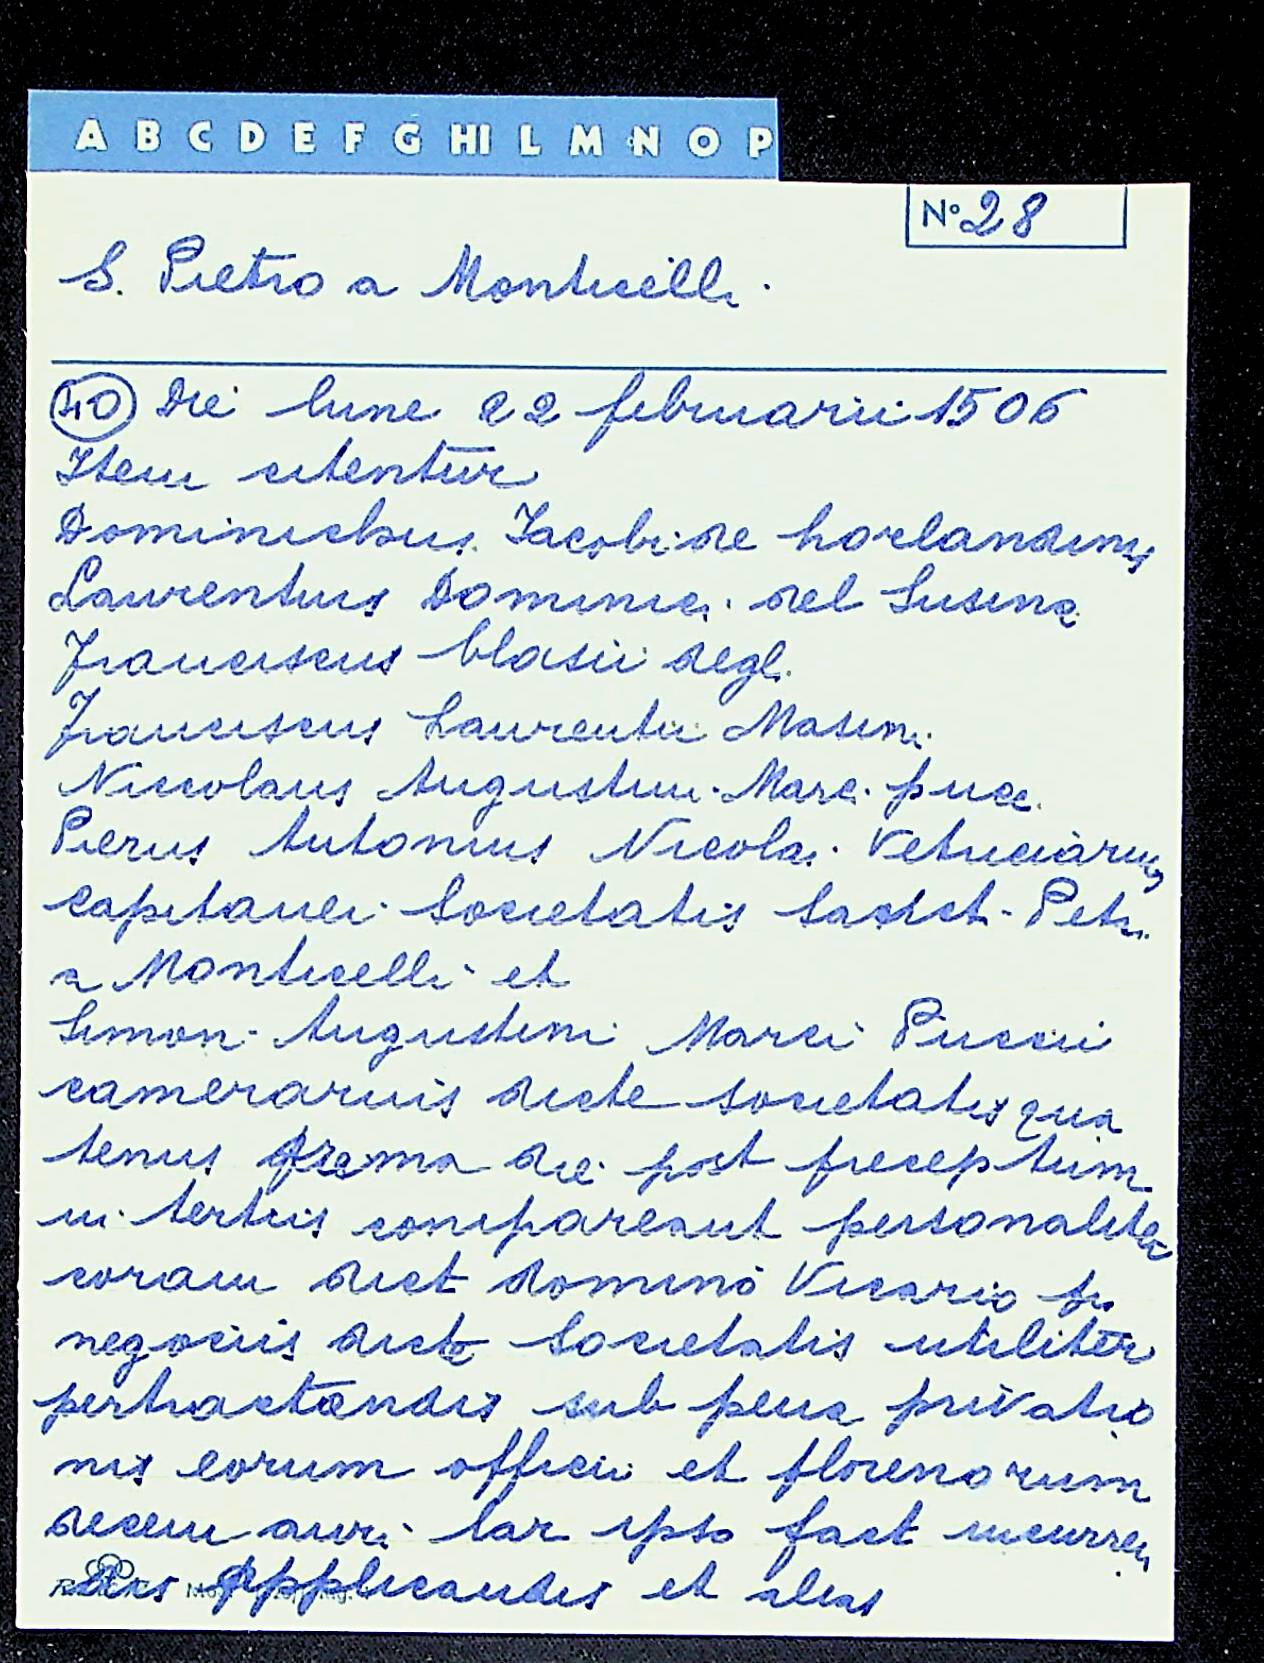 A B C D E F G HI L M N O P
N° 28
S. Pietro a Monticelli.
40 Die lune 22 februarii 1506
Item citentur
Dominichus Iacobi de horlandinis
Laurentius Dominici del Susina
Franciscus blasii degl.
Franciscus Laurentii Masini
Niccolaus Augustini Marci pucci
Pierus Antonius Nicolai Vetuciarius
capitanei Societatis Sanct. Petri
a Monticelli et
Simon Augustini Marci Puccii
camerarius dicte societatis qua
tenus prima die post preceptum
in tertiis compareant personaliter
coram dict domino Vicario pr
negociis dicte Societatis utiliter
pertractandis sub pena privatio
nis eorum officii et florenorum
decem auri lar ipso fact incurren
dis applicandis et alias